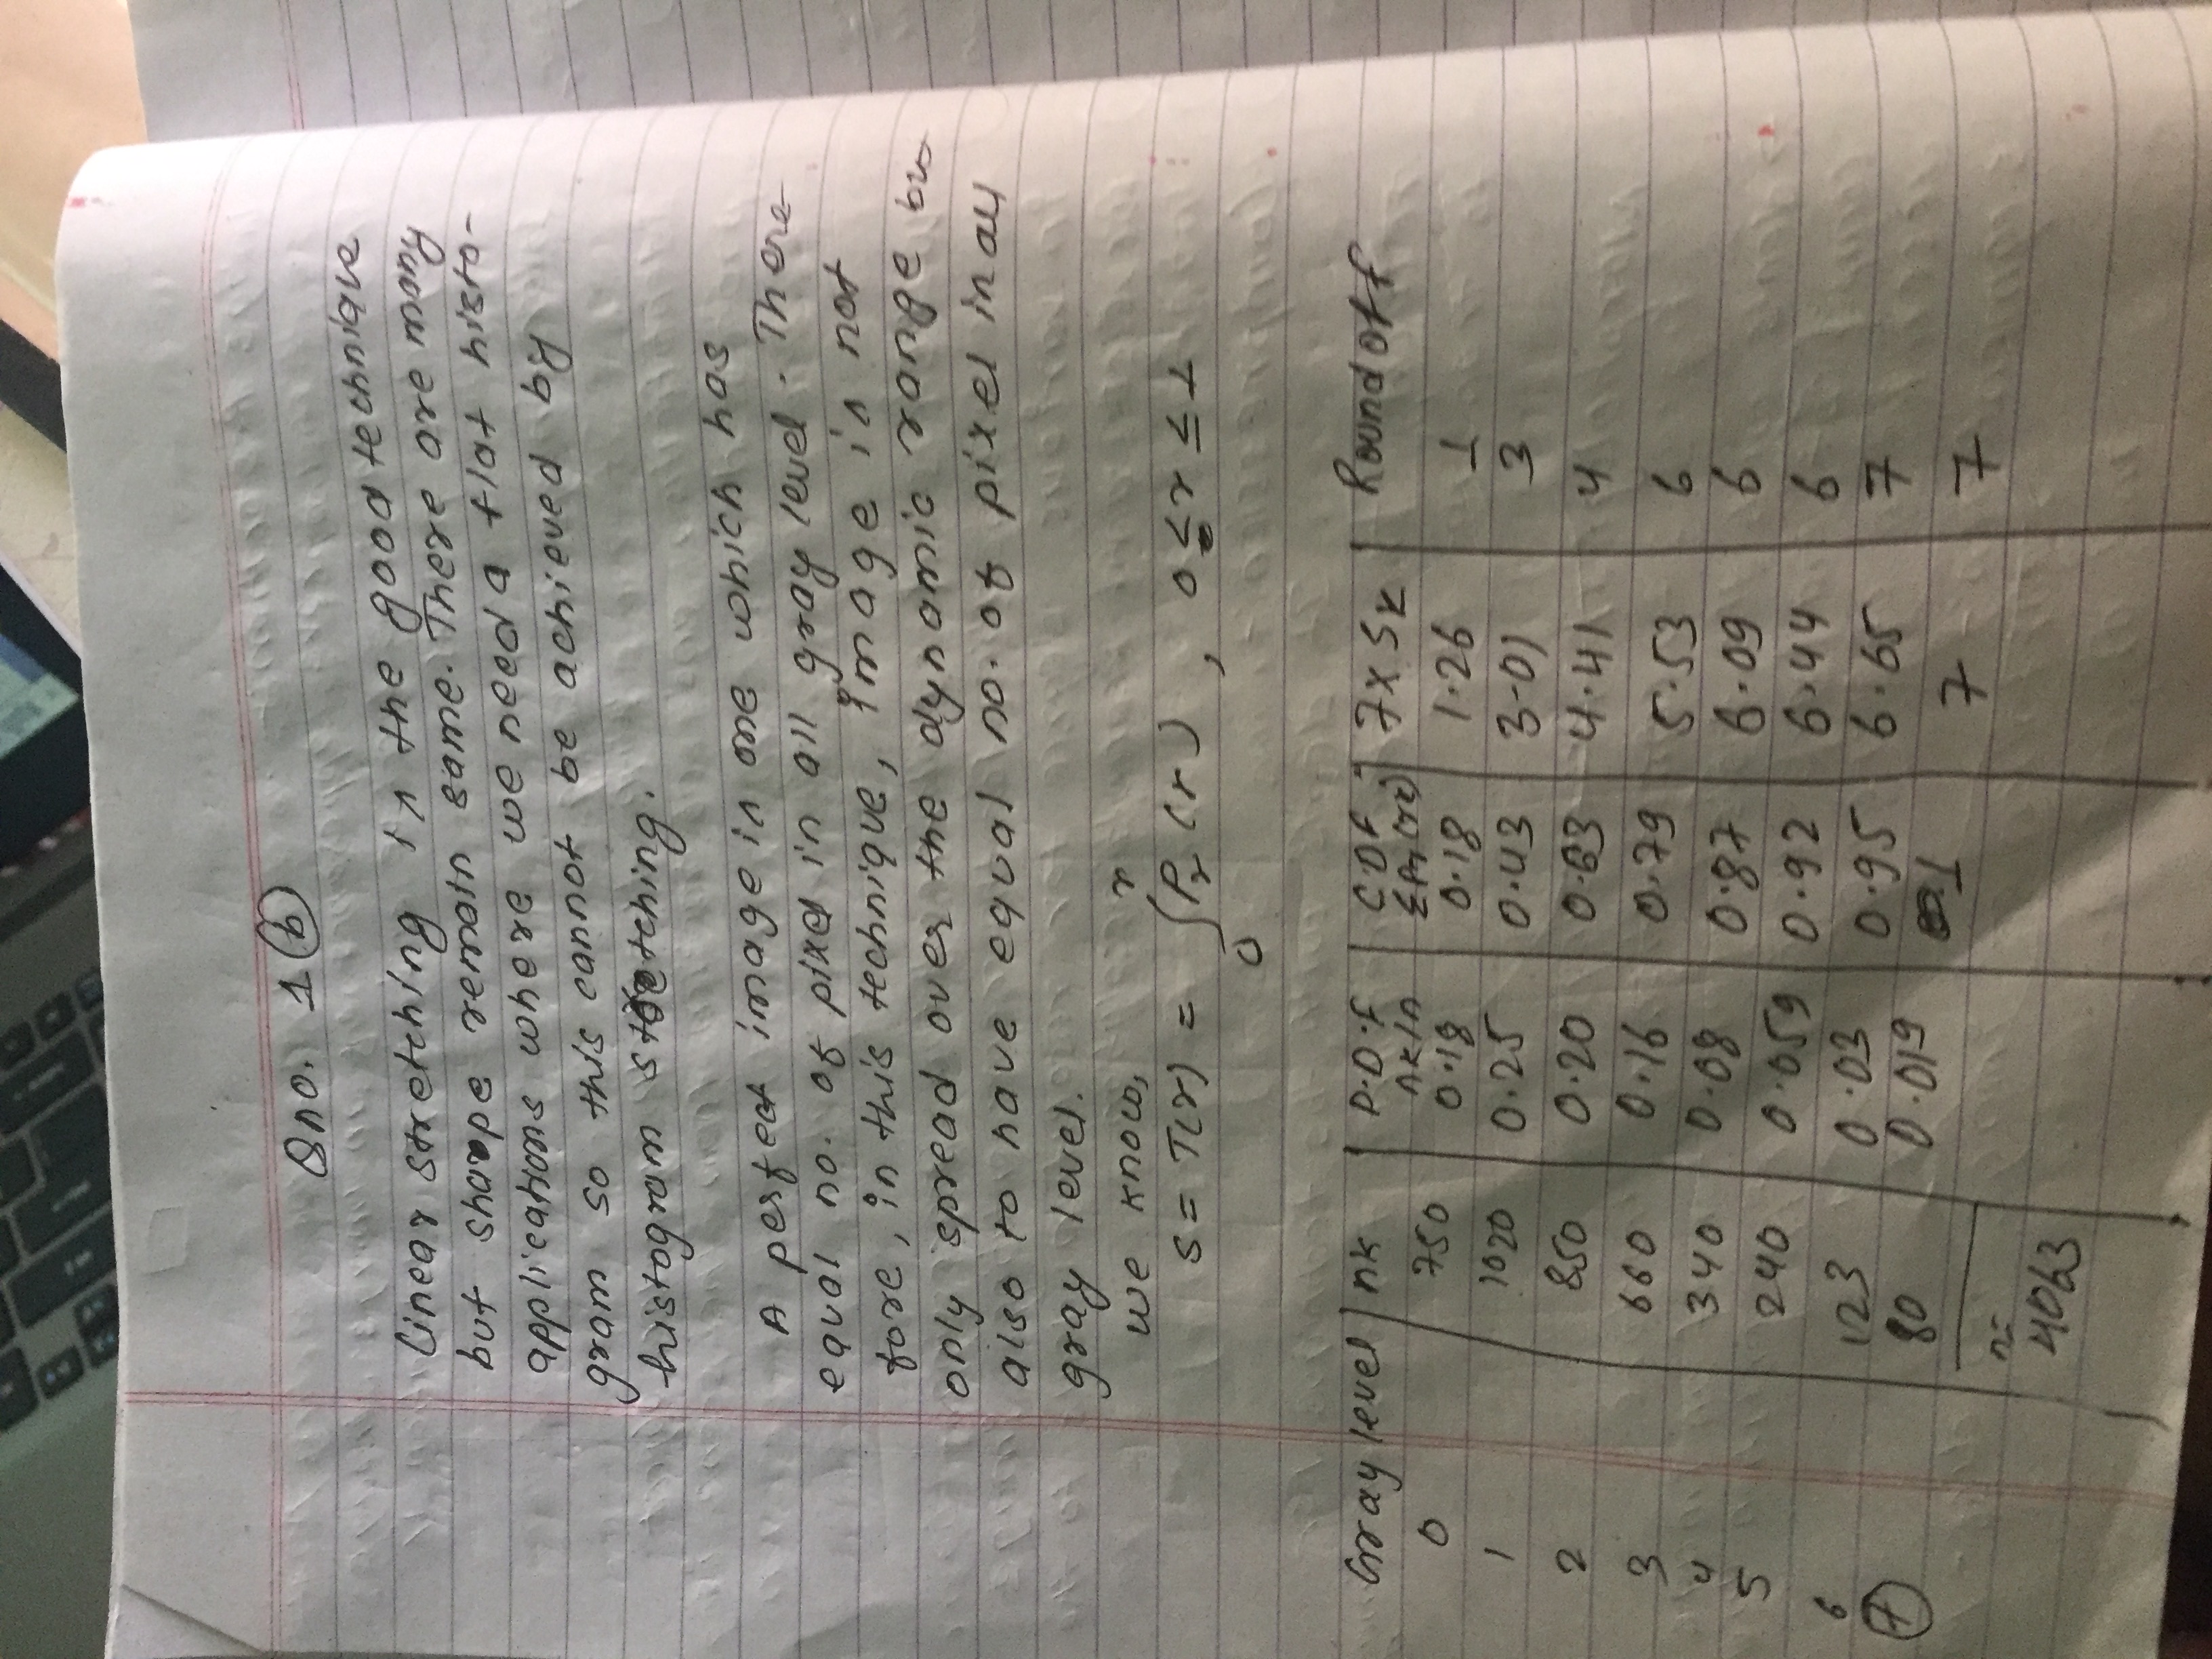 Qno. 1 (b)
Linear stretching is the good technique
but sharpe remain same. There are many
applications where we need a flat histo-
gram so this cannot be achieved by
histogram stretching.
A perfect image is one which has
equal no. of pixel in all gray level. There-
fore, in this technique, image is not
only spread over the dynamic range but
also to have equal no. of pixel in all
gray level.
we know,
s = T(r) = ∫₀ʳ Pr (r) , 0 ≤ r ≤ 1
Gray level | nk | P.D.F nk/n | C.D.F ΣPr(rk) | 7 x Sk | Round off
0 750 0.18 0.18 1.26 1
1 1020 0.25 0.43 3.01 3
2 850 0.20 0.63 4.41 4
3 660 0.16 0.79 5.53 6
4 340 0.08 0.87 6.09 6
5 240 0.059 0.92 6.44 6
6 123 0.03 0.95 6.65 7
7 80 0.019 1 7 7
n=
4063